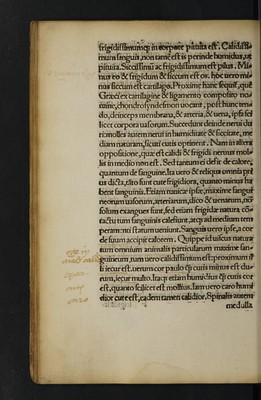 frigidissimumq; in corpore pituita est. Calidissi-
mum sanguis, non tamē est is perinde humidus, ut
pituita. Siccissimū ac frigidissimum est pilus. Mi-
nus eo & frigidum & siccum est os. hoc uero mi-
nus siccum est cartilago. Proxime hanc sequit, quē
Græci ex cartilagine & ligamento composito no-
mine, chondrosyndesmon uocant, post hunc ten-
do, deinceps membrana, & arteria, & uena, ipsa sci
licet corpora uasorum. Succedunt deinde nerui du
riores. molles autem nerui in humiditate & siccitate, me
diam naturam, sicuti cutis optinent. Nam in altera
oppositione, quæ est calidi & frigidi neruus mol-
lis in medio non est. Sed tantum ei desit de calore,
quantum de sanguine. Ita uero & reliqua omnia pri
us dicta, tāto sunt cute frigidiora, quanto minus ha
bent sanguinis. Etiam tunicæ ipsæ, maxime sangui
neorum uasorum, arteriarum, dico & uenarum, nō
solum exangues sunt, sed etiam frigidæ natura. cō-
tactu tum sanguinis calefiunt, atq; ad medium tem
peramenti statum ueniunt. Sanguis uero ipse, a cor
de suum accipit calorem. Quippe id uiscus natura
tum omnium animalis particularum maxime san-
guineum, tum uero calidissimum est: proximum il
li iecur est. uerum cor paulo q̄ cutis minus est du-
rum, iecur multo. Itaq; etiam humidius q̄ cutis cor
est, quanto scilicet est mollius. Iam uero caro humi
dior cute est, eadem tamen calidior. Spinalis autem
medulla